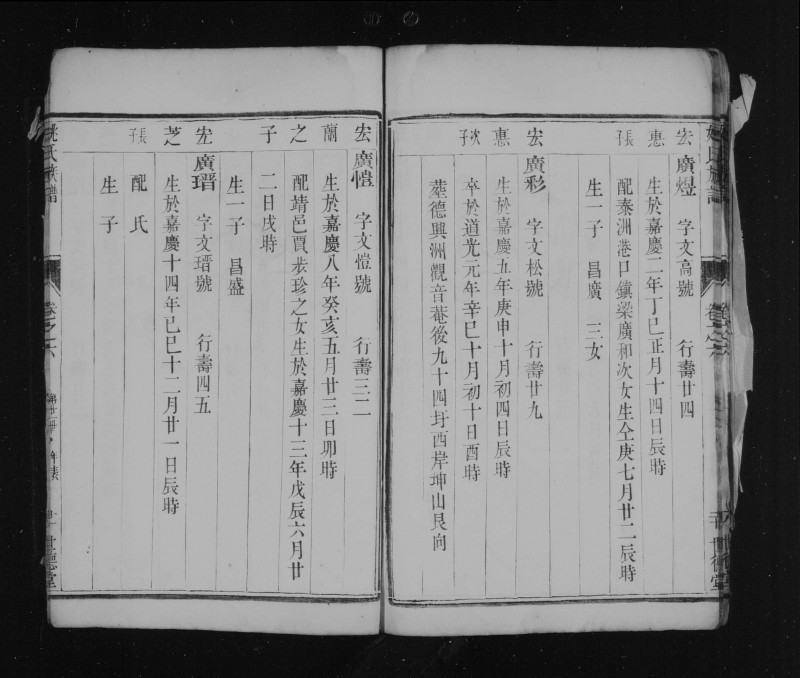 宏惠長
廣煜 字文高號 行壽廿四
生於嘉慶二年丁巳正月十四日辰時
配泰洲港口鎮梁廣和次女生仝庚七月廿二辰時
生一子 昌廣 三女
宏惠次子
廣彩 字文松號 行壽廿九
生於嘉慶五年庚申十月初四日辰時
卒於道光元年辛巳十月初十日酉時
葬德興洲觀音菴後九十四圩西岸坤山艮向
宏蘭之子
廣愷 字文愷號 行壽三二
生於嘉慶八年癸亥五月廿三日卯時
配靖邑賈步珍之女生於嘉慶十三年戊辰六月廿
二日戌時
生一子 昌盛
宏芝長子
廣瑨 字文瑨號 行壽四五
生於嘉慶十四年己巳十二月廿一日辰時
配氏
生子
姚氏族譜 卷之六 世德堂